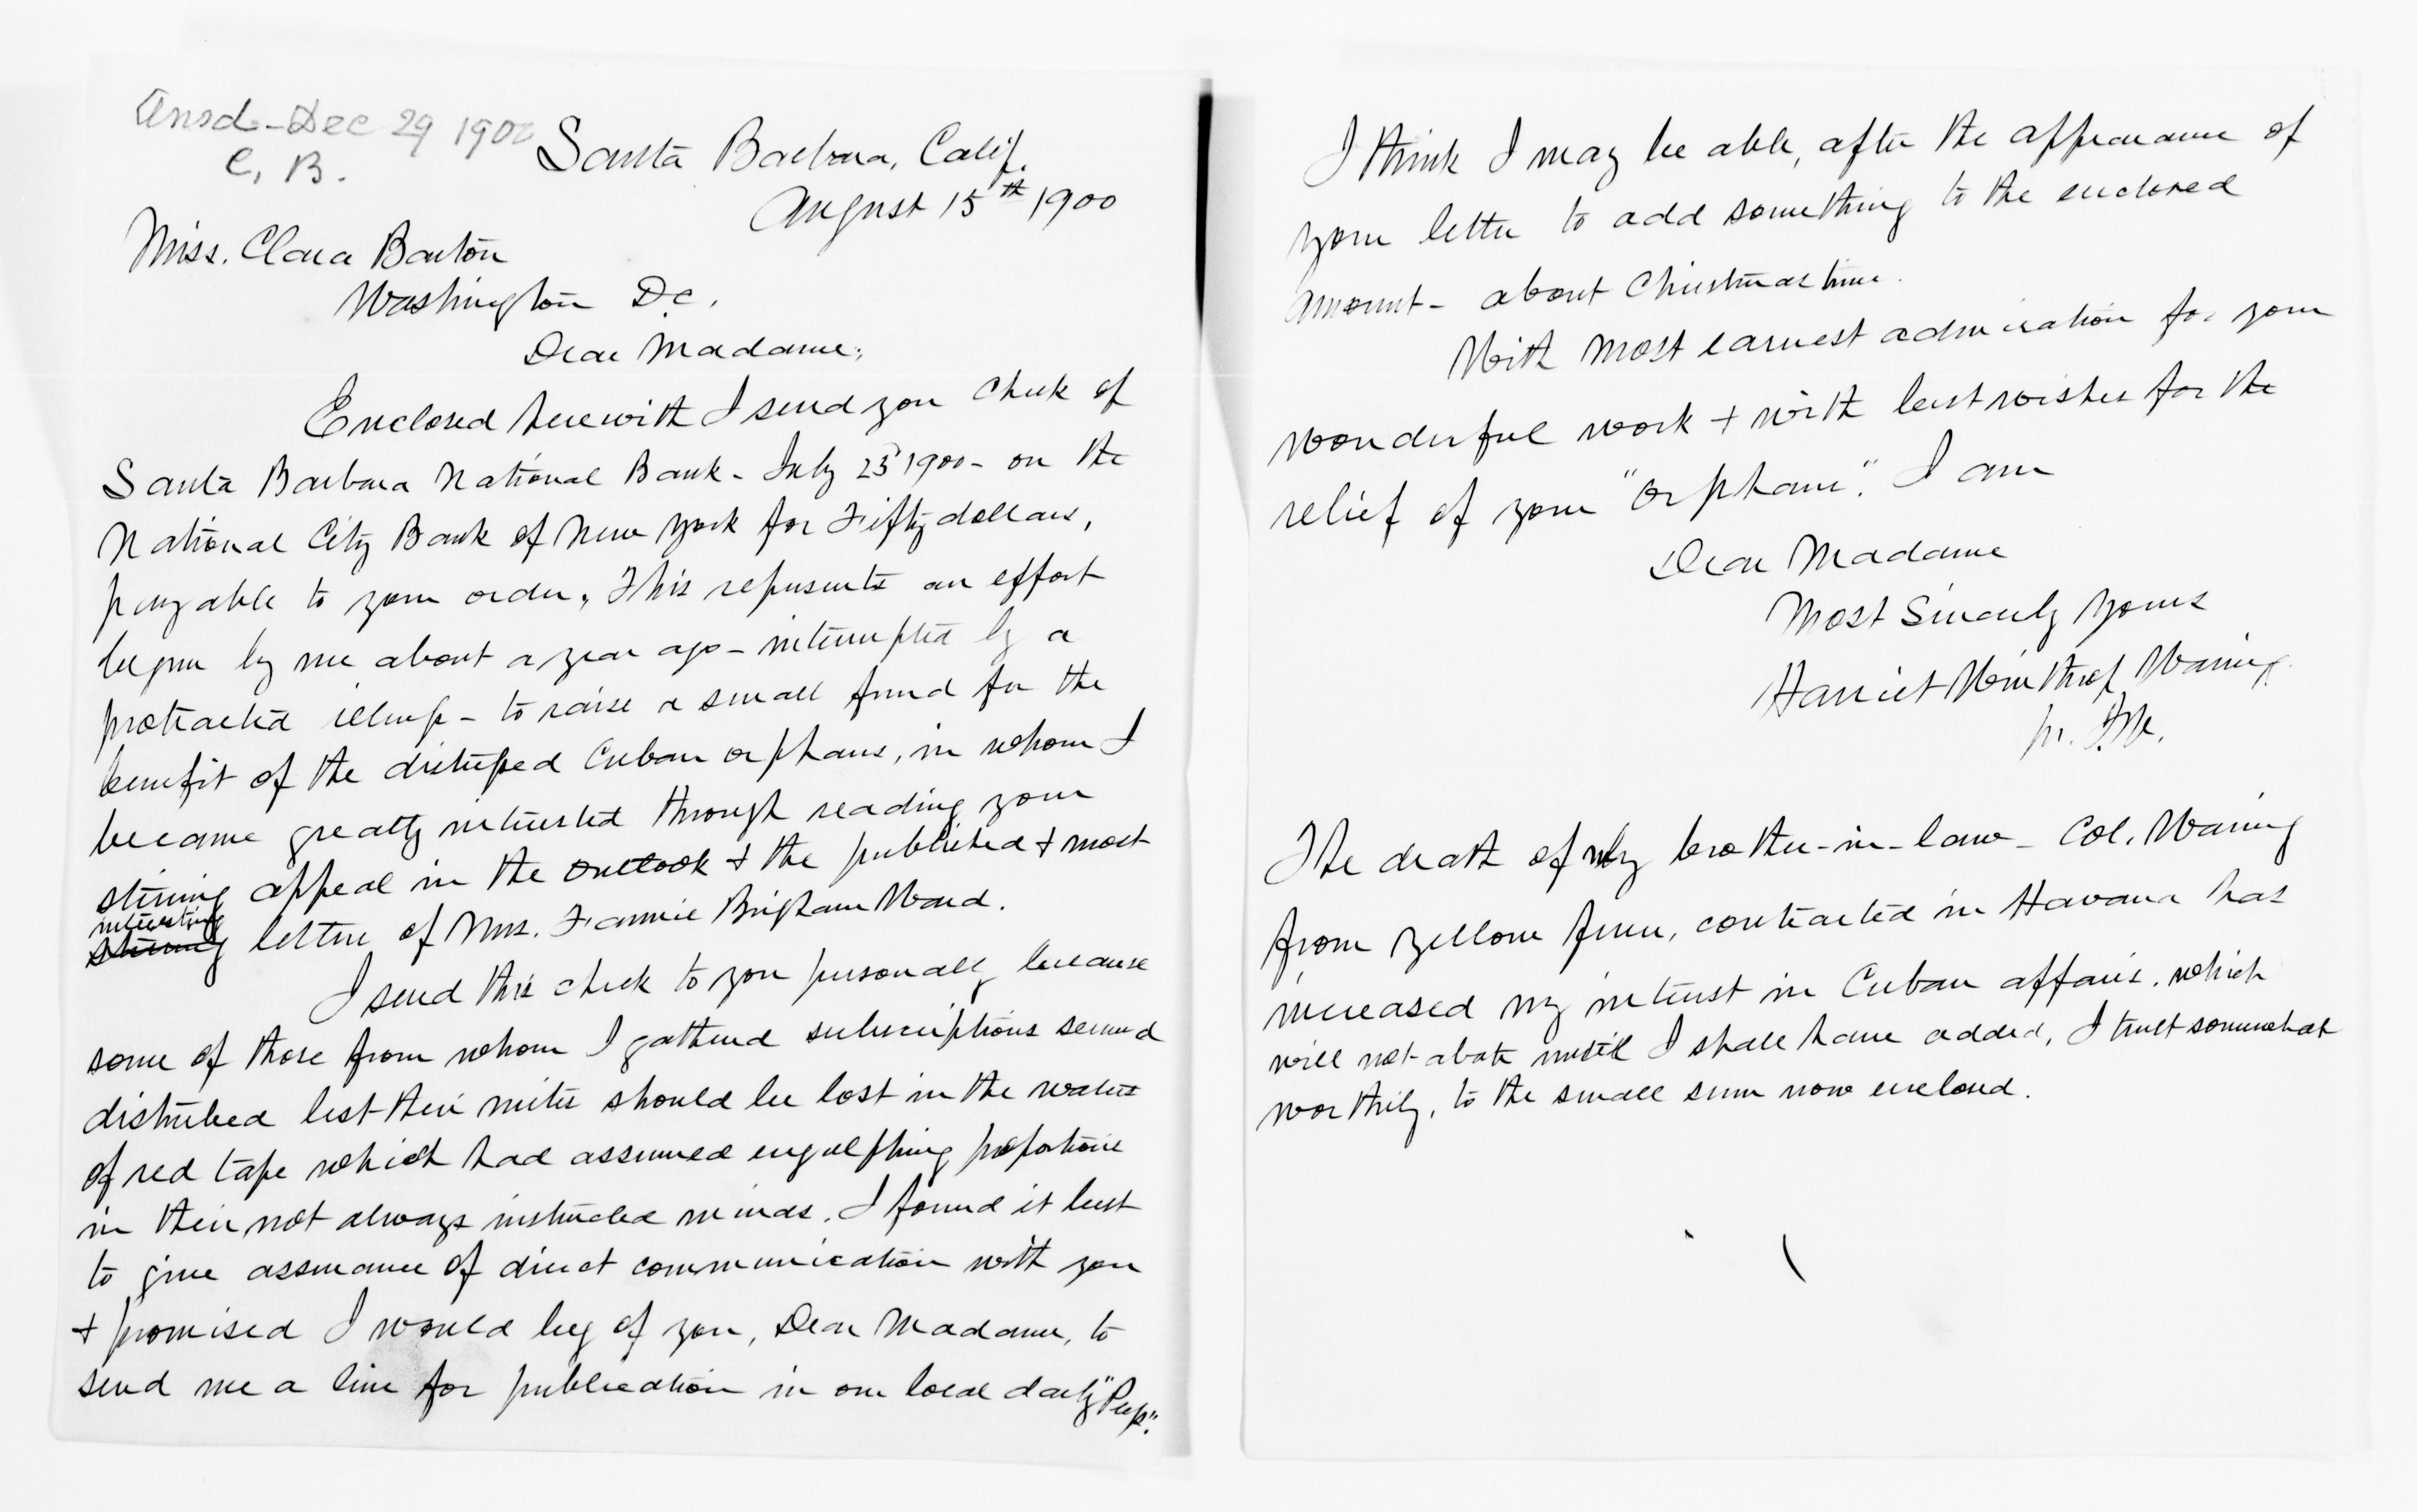 Ansd - Dec 29 1900
C. B.
Santa Barbara, Calif.
August 15th 1900
Miss. Clara Barton
Washington D.C.
Dear Madame;
Enclosed herewith I send you check of
Santa Barbara National Bank - July 25 1900 - on the
National City Bank of New York for Fifty dollars,
payable to your order. This represents an effort
begun by me about a year ago - interrupted by a
protracted illness - to raise a small fund for the
benefit of the distressed Cuban orphans, in whom I
became greatly interested through reading your
stirring appeal in the Outlook & the published & most
interesting
stirring letters of Mrs. Fannie Brigham Ward.
I send this check to you personally because
some of those from whom I gathered subscriptions seemed
disturbed lest their mites should be lost in the wastes
of red tape which had assumed engulphing proportions
in their not always instructed minds. I found it best
to give assurance of direct communication with you
& promised I would beg of you, Dear Madame, to
send me a line for publication in our local daily "Press".
I think I may be able, after the appearance of
your letter to add something to the enclosed
amount - about Christmas time.
With most earnest admiration for your
wonderful work & with best wishes for the
relief of your "orphans". I am
Dear Madame
Most Sincerely Yours
Harriet Winthrop Waring
The death of my brother-in-law - Col. Waring
from yellow fever, contracted in Havana has
increased my interest in Cuban affairs, which
will not abate until I shall have added, I trust somewhat
worthily, to the small sum now enclosed.